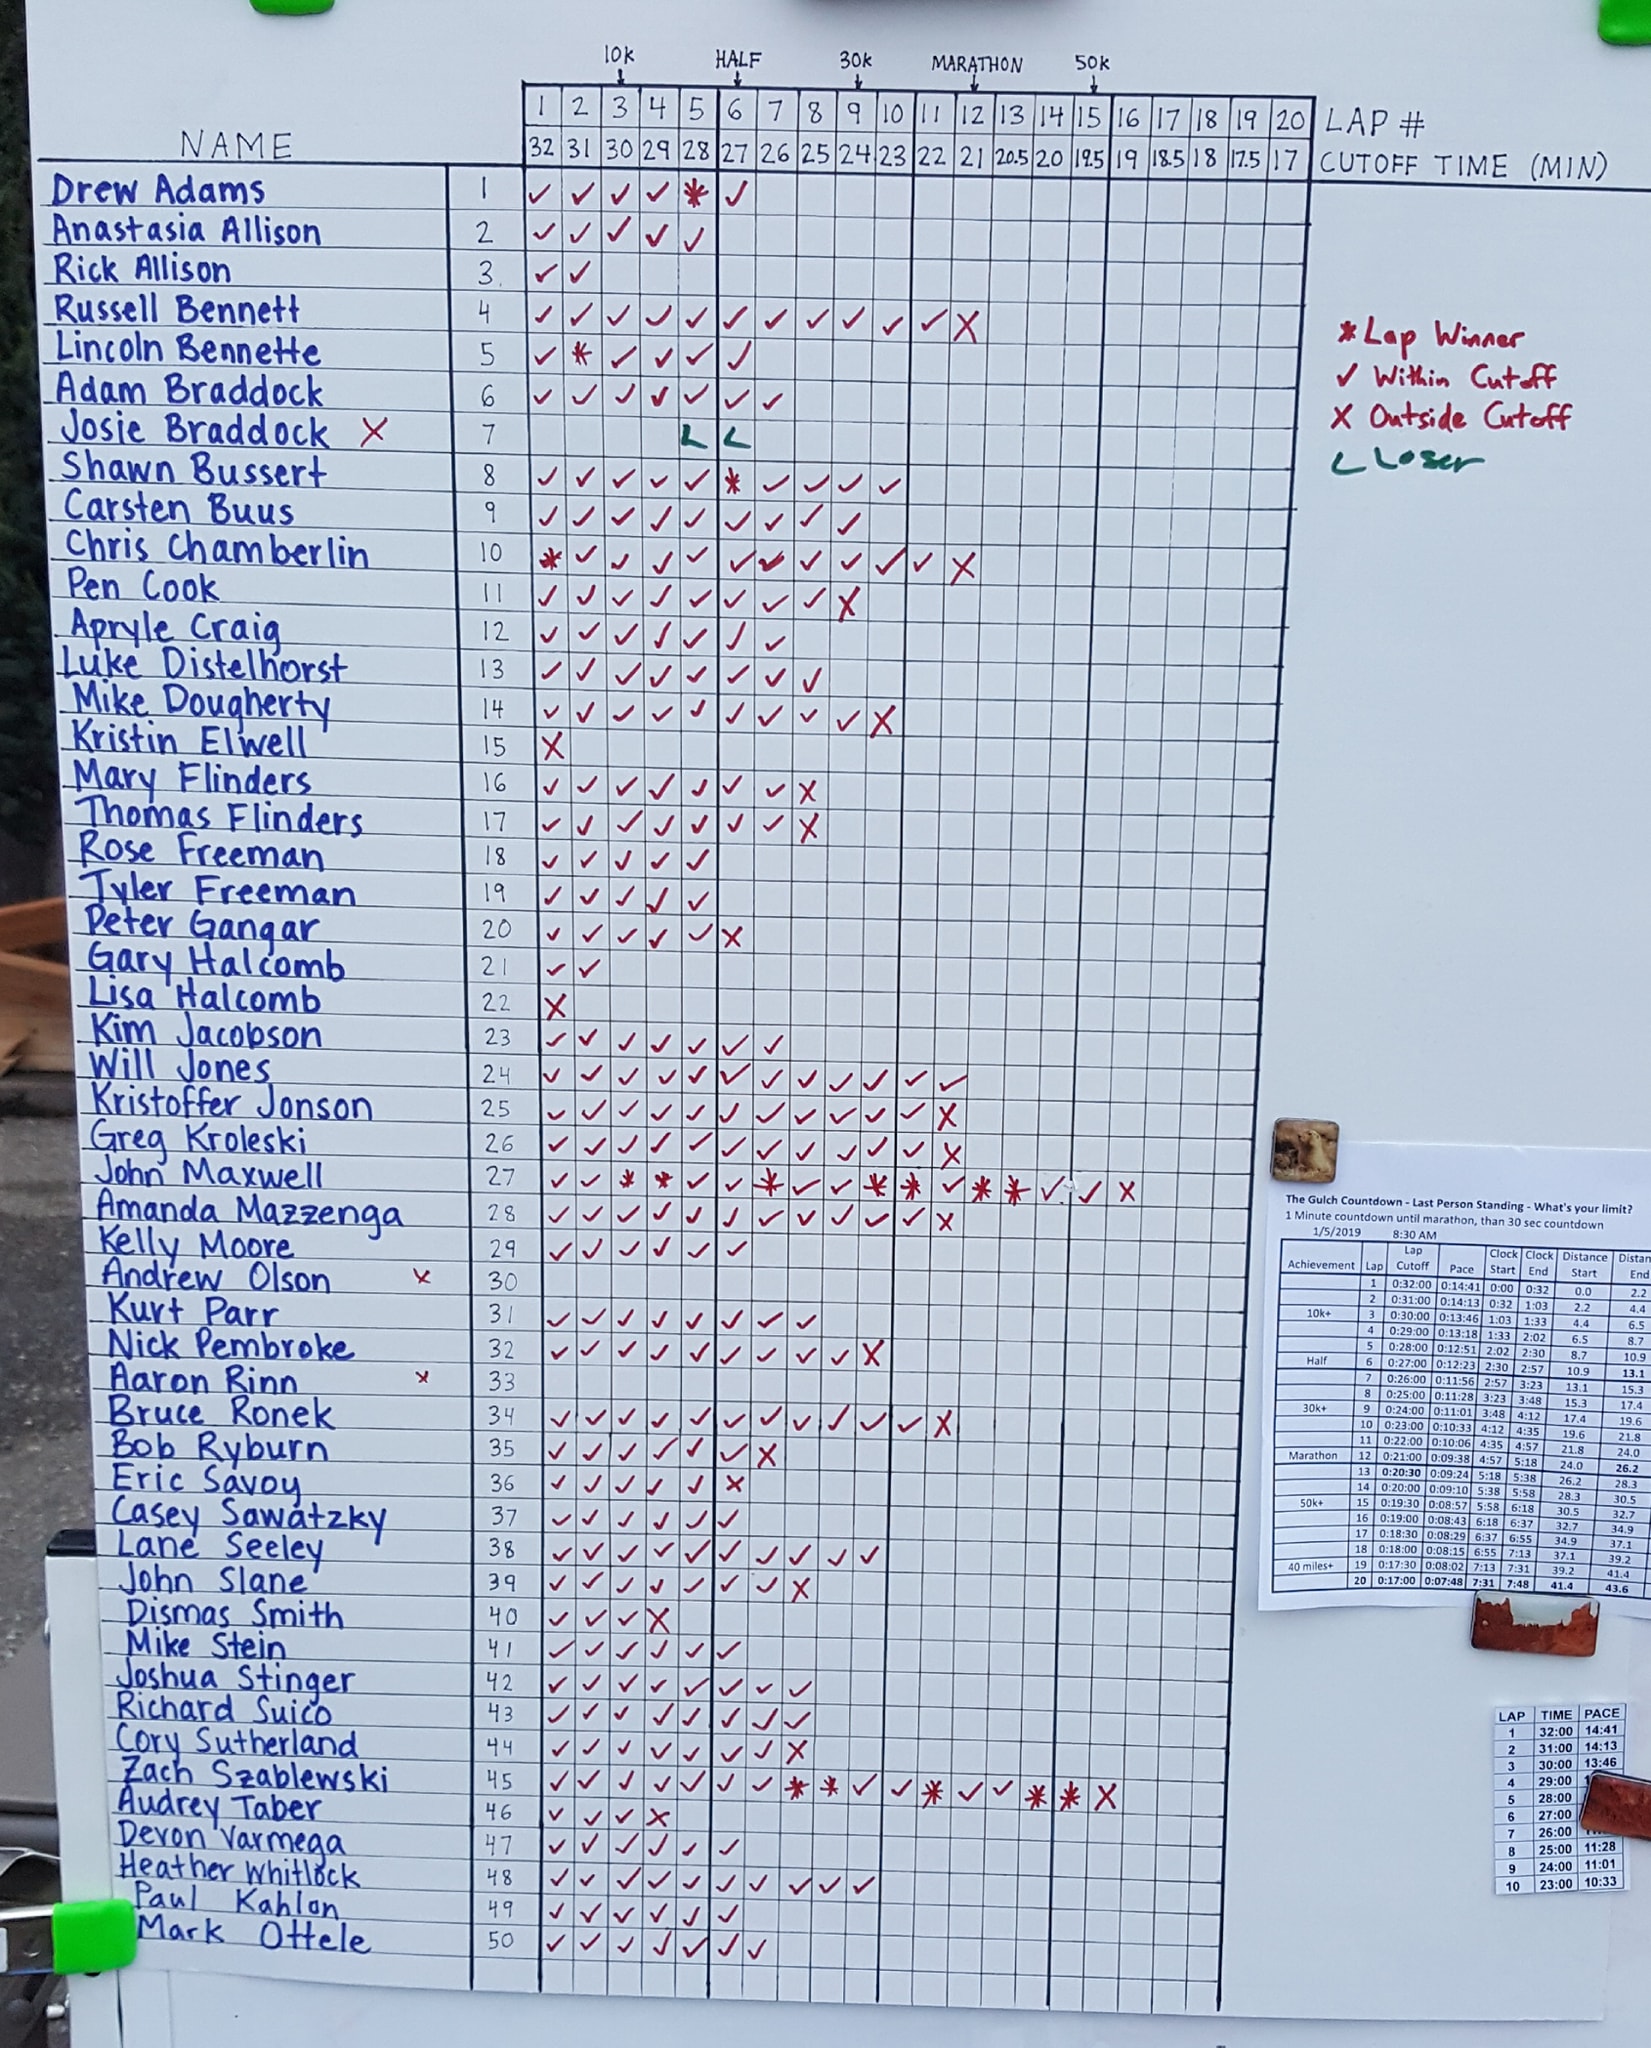 10K HALF 30K MARATHON 50K
1 2 3 4 5 6 7 8 9 10 11 12 13 14 15 16 17 18 19 20 LAP #
NAME 32 31 30 29 28 27 26 25 24 23 22 21 20.5 20 19.5 19 18.5 18 17.5 17 CUTOFF TIME (MIN)
Drew Adams 1 ✓ ✓ ✓ ✓ * ✓
Anastasia Allison 2 ✓ ✓ ✓ ✓ ✓
Rick Allison 3 ✓ ✓
Russell Bennett 4 ✓ ✓ ✓ ✓ ✓ ✓ ✓ ✓ ✓ ✓ ✓ X
Lincoln Bennette 5 ✓ * ✓ ✓ ✓ ✓
Adam Braddock 6 ✓ ✓ ✓ ✓ ✓ ✓ ✓
Josie Braddock X 7 L L
Shawn Bussert 8 ✓ ✓ ✓ ✓ ✓ * ✓ ✓ ✓ ✓
Carsten Buus 9 ✓ ✓ ✓ ✓ ✓ ✓ ✓ ✓ ✓
Chris Chamberlin 10 * ✓ ✓ ✓ ✓ ✓ ✓ ✓ ✓ ✓ ✓ X
Pen Cook 11 ✓ ✓ ✓ ✓ ✓ ✓ ✓ ✓ X
Apryle Craig 12 ✓ ✓ ✓ ✓ ✓ ✓ ✓
Luke Distelhorst 13 ✓ ✓ ✓ ✓ ✓ ✓ ✓ ✓
Mike Dougherty 14 ✓ ✓ ✓ ✓ ✓ ✓ ✓ ✓ ✓ X
Kristin Elwell 15 X
Mary Flinders 16 ✓ ✓ ✓ ✓ ✓ ✓ ✓ X
Thomas Flinders 17 ✓ ✓ ✓ ✓ ✓ ✓ ✓ X
Rose Freeman 18 ✓ ✓ ✓ ✓ ✓
Tyler Freeman 19 ✓ ✓ ✓ ✓ ✓
Peter Gangar 20 ✓ ✓ ✓ ✓ ✓ X
Gary Halcomb 21 ✓ ✓
Lisa Halcomb 22 X
Kim Jacobson 23 ✓ ✓ ✓ ✓ ✓ ✓ ✓
Will Jones 24 ✓ ✓ ✓ ✓ ✓ ✓ ✓ ✓ ✓ ✓ ✓ ✓
Kristoffer Jonson 25 ✓ ✓ ✓ ✓ ✓ ✓ ✓ ✓ ✓ ✓ ✓ X
Greg Kroleski 26 ✓ ✓ ✓ ✓ ✓ ✓ ✓ ✓ ✓ ✓ ✓ X
John Maxwell 27 ✓ ✓ * * ✓ ✓ * ✓ ✓ * * ✓ * * ✓ ✓ X
Amanda Mazzenga 28 ✓ ✓ ✓ ✓ ✓ ✓ ✓ ✓ ✓ ✓ ✓ X
Kelly Moore 29 ✓ ✓ ✓ ✓ ✓ ✓
Andrew Olson X 30
Kurt Parr 31 ✓ ✓ ✓ ✓ ✓ ✓ ✓ ✓
Nick Pembroke 32 ✓ ✓ ✓ ✓ ✓ ✓ ✓ ✓ ✓ X
Aaron Rinn X 33
Bruce Ronek 34 ✓ ✓ ✓ ✓ ✓ ✓ ✓ ✓ ✓ ✓ ✓ X
Bob Ryburn 35 ✓ ✓ ✓ ✓ ✓ ✓ X
Eric Savoy 36 ✓ ✓ ✓ ✓ ✓ X
Casey Sawatzky 37 ✓ ✓ ✓ ✓ ✓ ✓
Lane Seeley 38 ✓ ✓ ✓ ✓ ✓ ✓ ✓ ✓ ✓ ✓
John Slane 39 ✓ ✓ ✓ ✓ ✓ ✓ ✓ X
Dismas Smith 40 ✓ ✓ ✓ X
Mike Stein 41 ✓ ✓ ✓ ✓ ✓ ✓
Joshua Stinger 42 ✓ ✓ ✓ ✓ ✓ ✓ ✓ ✓
Richard Suico 43 ✓ ✓ ✓ ✓ ✓ ✓ ✓ ✓
Cory Sutherland 44 ✓ ✓ ✓ ✓ ✓ ✓ ✓ X
Zach Szablewski 45 ✓ ✓ ✓ ✓ ✓ ✓ ✓ * * ✓ ✓ * ✓ ✓ * * X
Audrey Taber 46 ✓ ✓ ✓ X
Devon Varmega 47 ✓ ✓ ✓ ✓ ✓ ✓
Heather Whitlock 48 ✓ ✓ ✓ ✓ ✓ ✓ ✓ ✓ ✓ ✓
Paul Kahlon 49 ✓ ✓ ✓ ✓ ✓ ✓
Mark Ottele 50 ✓ ✓ ✓ ✓ ✓ ✓ ✓
* Lap Winner
✓ Within Cutoff
X Outside Cutoff
L Loser
The Gulch Countdown - Last Person Standing - What's your limit?
1 Minute countdown until marathon, than 30 sec countdown
1/5/2019 8:30 AM
Achievement Lap Lap Cutoff Pace Clock Start Clock End Distance Start End
1 0:32:00 0:14:41 0:00 0:32 0.0 2.2
2 0:31:00 0:14:13 0:32 1:03 2.2 4.4
10k+ 3 0:30:00 0:13:46 1:03 1:33 4.4 6.5
4 0:29:00 0:13:18 1:33 2:02 6.5 8.7
5 0:28:00 0:12:51 2:02 2:30 8.7 10.9
Half 6 0:27:00 0:12:23 2:30 2:57 10.9 13.1
7 0:26:00 0:11:56 2:57 3:23 13.1 15.3
8 0:25:00 0:11:28 3:23 3:48 15.3 17.4
30k+ 9 0:24:00 0:11:01 3:48 4:12 17.4 19.6
10 0:23:00 0:10:33 4:12 4:35 19.6 21.8
11 0:22:00 0:10:06 4:35 4:57 21.8 24.0
Marathon 12 0:21:00 0:09:38 4:57 5:18 24.0 26.2
13 0:20:30 0:09:24 5:18 5:38 26.2 28.3
14 0:20:00 0:09:10 5:38 5:58 28.3 30.5
50k+ 15 0:19:30 0:08:57 5:58 6:18 30.5 32.7
16 0:19:00 0:08:43 6:18 6:37 32.7 34.9
17 0:18:30 0:08:29 6:37 6:55 34.9 37.1
18 0:18:00 0:08:15 6:55 7:13 37.1 39.2
40 miles+ 19 0:17:30 0:08:02 7:13 7:31 39.2 41.4
20 0:17:00 0:07:48 7:31 7:48 41.4 43.6
LAP TIME PACE
1 32:00 14:41
2 31:00 14:13
3 30:00 13:46
4 29:00
5 28:00
6 27:00
7 26:00
8 25:00 11:28
9 24:00 11:01
10 23:00 10:33